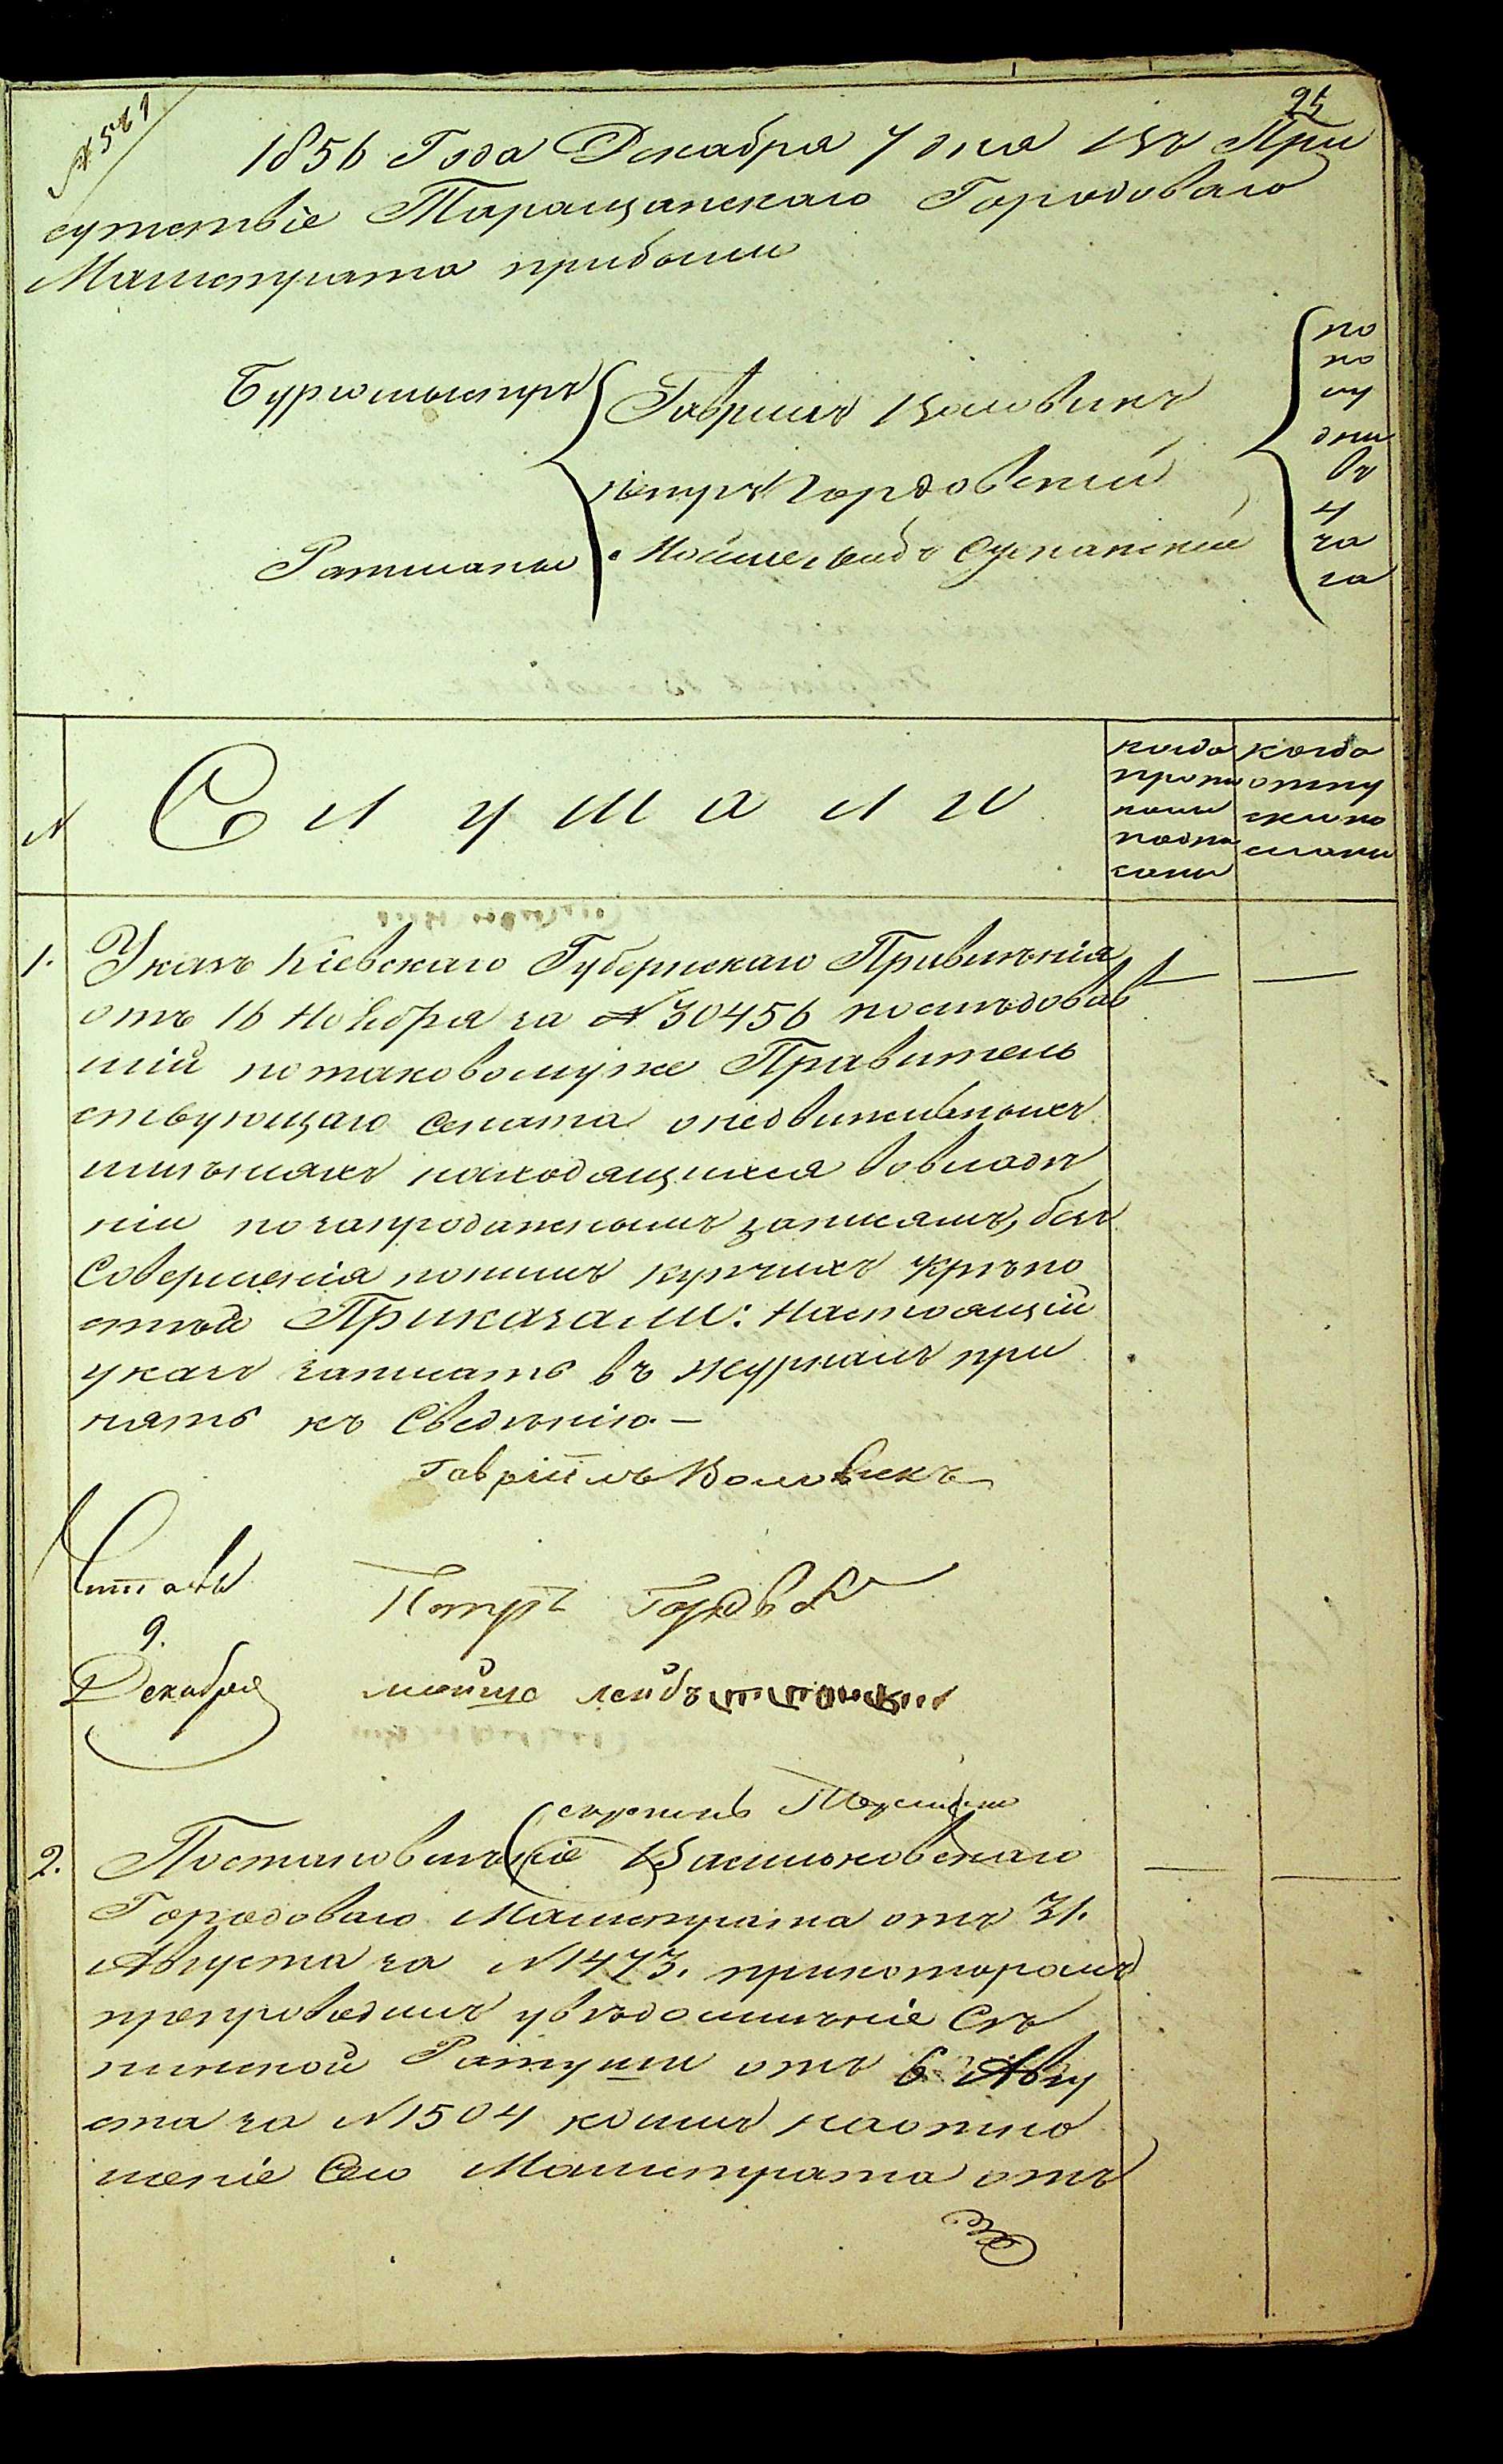 25
1856 Года Декабря 7 дня Въ При
сутствіе Таращанскаго Городоваго
Магистрата прибыли
Бургомыстръ
Гаврилъ Воловикъ
Петръ Гордовскій
Ратманы
Мойше Лейбъ
по
по
лу
дни
въ
4
ча
са
N
Слушали
когда
прото
колы
подпи
саны
когда
отпу
ски по
сланы
1. Указъ Кіевскаго Губернскаго Правленія
отъ 16 Ноября за № 30456 последовав
шій по таковому же Правитель
ствующаго Сената о недвижимыхъ
имъніяхъ находящихся во владе
ніи по запродажнымъ записямъ, безъ
Совершенія по нимъ купчихъ кръпо
стей Приказали: Настоящій
указъ записать въ журналъ при
нять къ Сведенію. —
Гавріилъ Воловикъ
Читалъ
9.
Декабря
Петръ
мойше лейбъ
2. Постановленіе Васильковскаго
Городоваго Магистрата отъ 31.
Августа за N 1473. при которомъ
препроводилъ увъдомленіе Ск
винской Ратуши отъ 6 Авгу
ста за N 1504 коимъ на отно
шеніе Сего Магистрата отъ